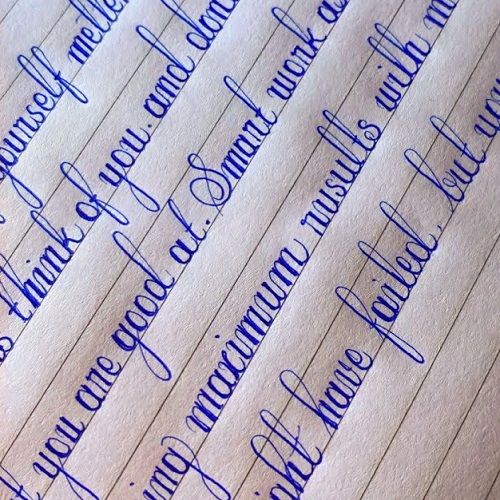 yourself
think of you. and don
you are good at. Smart work a
ing maximum rusults with m
ght have failed, but you